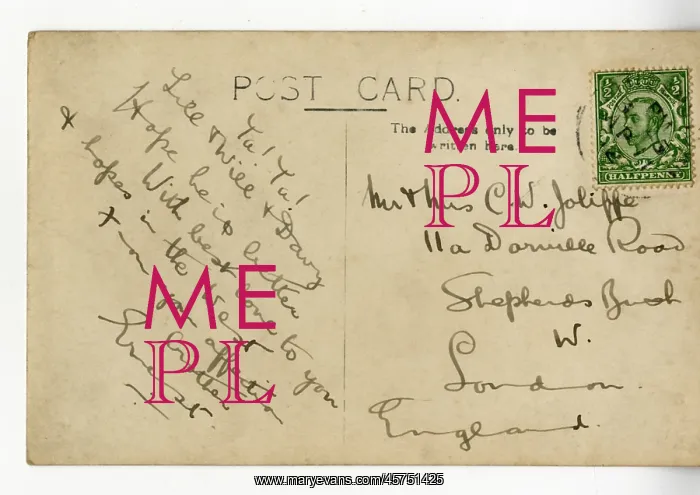 POST CARD.
The Address only to be
written here.
HALFPENNY
Ta! Ta!
Lill & Will & Davy
Hope he is better
With best love to you
x hopes in the
x
from
brother
Ernest.
Mr & Mrs C. W. Joliffe
11a Darville Road
Shepherds Bush
W.
London.
England.
ME
PL
ME
PL
www.maryevans.com/45751425